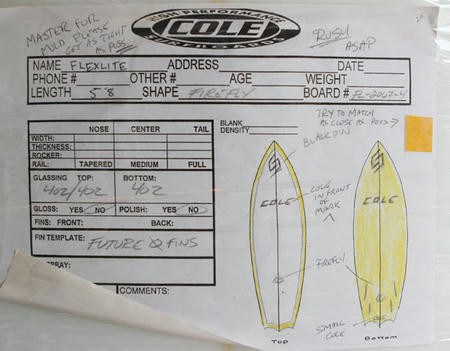 MASTER FOR
MOLD PLEASE
GET AS TIGHT
AS POSS.
HIGH-PERFORMANCE
COLE
SURFBOARDS
RUSH
ASAP
NAME FLEXLITE ADDRESS DATE
PHONE # OTHER # AGE WEIGHT
LENGTH 5'8 SHAPE FIREFLY BOARD # FL-2007-4
BLANK
DENSITY
TRY TO MATCH
AS CLOSE AS POSS →
BLACK PIN
NOSE CENTER TAIL
WIDTH:
THICKNESS:
ROCKER:
RAIL: TAPERED MEDIUM FULL
GLASSING TOP: BOTTOM:
4oz/4oz 4oz
GLOSS: YES NO POLISH: YES NO
FINS: FRONT: BACK:
FIN TEMPLATE:
FUTURE FINS
SPRAY:
COMMENTS:
COLE
IN FRONT
OF
MARK
COLE
COLE
FIREFLY
SMALL
COLE
Top
Bottom